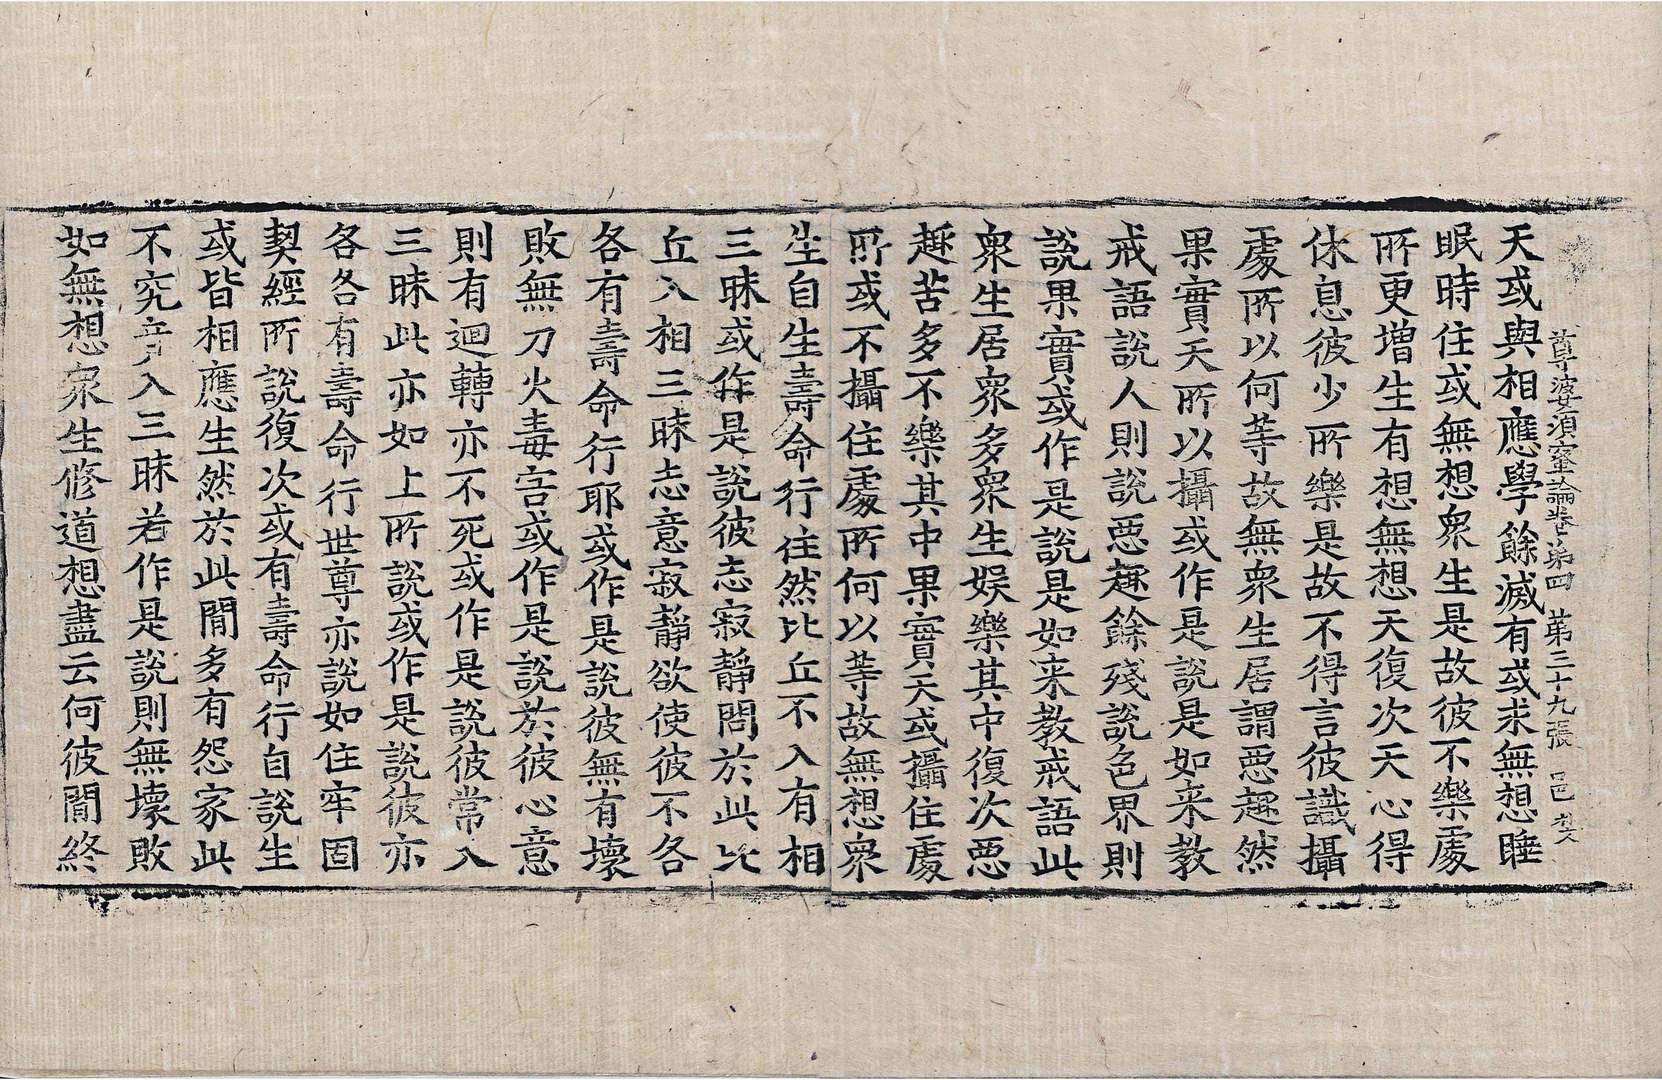 尊婆須蜜論卷第四 第三十九張 邑
天或與相應學餘滅有或求無想睡
眠時住或無想衆生是故彼不樂處
所更增生有想無想天復次天心得
休息彼少所樂是故不得言彼識攝
處所以何等故無衆生居謂惡趣然
果實天所以攝或作是說是如来教
戒語說人則說惡趣餘殘說色界則
說果實或作是說是如来教戒語此
衆生居衆多衆生娱樂其中復次惡
趣苦多不樂其中果實天或攝住處
所或不攝住處所何以等故無想衆
生自生壽命行住然比丘不入有相
三昧或作是說彼志寂靜問於此比
丘入相三昧志意寂靜欲使彼不各
各有壽命行耶或作是說彼無有壞
敗無刀火毒害或作是說於彼心意
則有迴轉亦不死或作是說彼常入
三昧此亦如上所說或作是說彼亦
各各有壽命行世尊亦說如住牢固
契經所說復次或有壽命行自說生
或皆相應生然於此閒多有怨家此
不究竟入三昧若作是說則無壞敗
如無想衆生修道想盡云何彼閒終